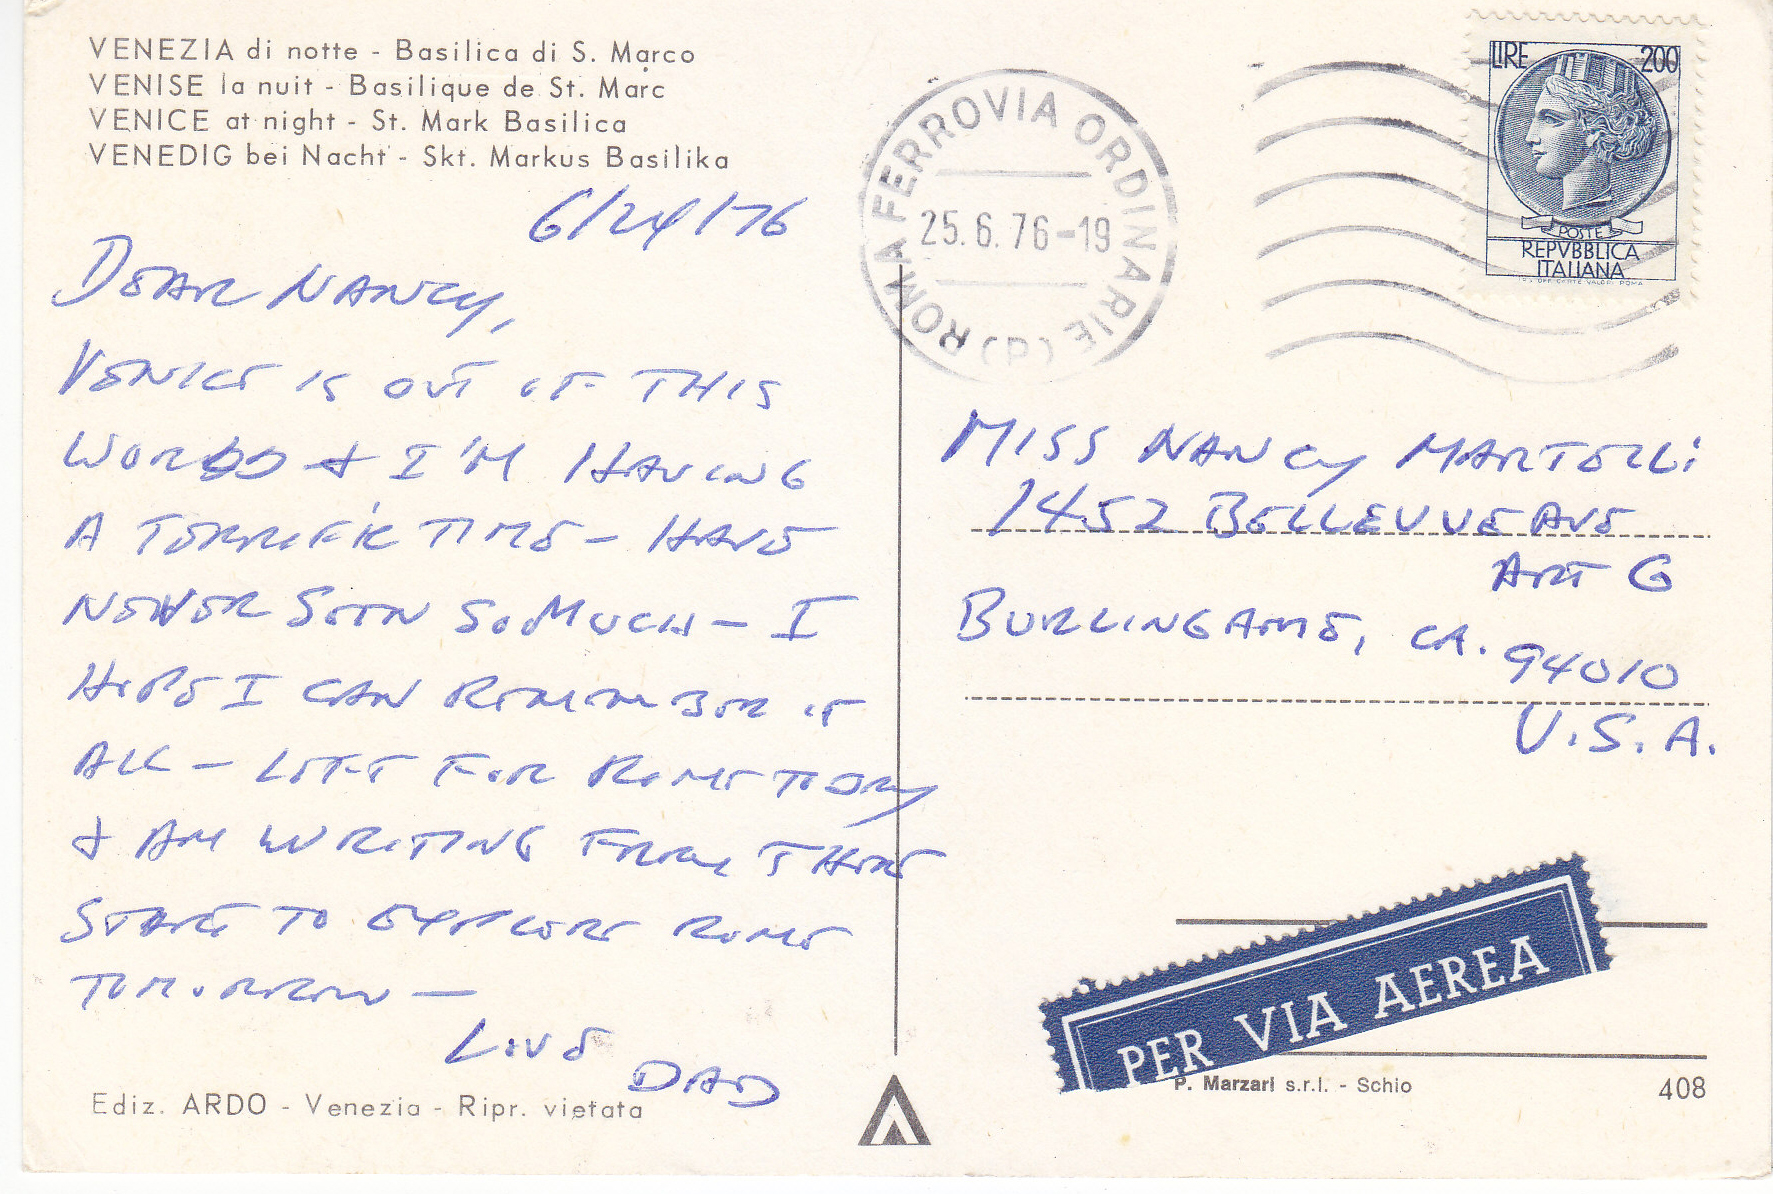 VENEZIA di notte - Basilica di S. Marco
VENISE la nuit - Basilique de St. Marc
VENICE at night - St. Mark Basilica
VENEDIG bei Nacht - Skt. Markus Basilika
6/24/76
DEAR NANCY,
VENICE IS OUT OF THIS
WORLD & I'M HAVING
A TERRIFIC TIME - HAVE
NEVER SEEN SO MUCH - I
HOPE I CAN REMEMBER IT
ALL - LEFT FOR ROME TODAY
& AM WRITING FROM THERE
START TO EXPLORE ROME
TOMORROW -
LOVE
DAD
Ediz. ARDO - Venezia - Ripr. vietata
ROMA FERROVIA ORDINARIE (P.)
25.6.76-19
LIRE 200
POSTE
REPVBBLICA
ITALIANA
I.P.S. OFF. CARTE VALORI ROMA
MISS NANCY MARTELLI
1452 BELLEVUE AVE
APT G
BURLINGAME, CA. 94010
U.S.A.
PER VIA AEREA
P. Marzari s.r.l. - Schio
408